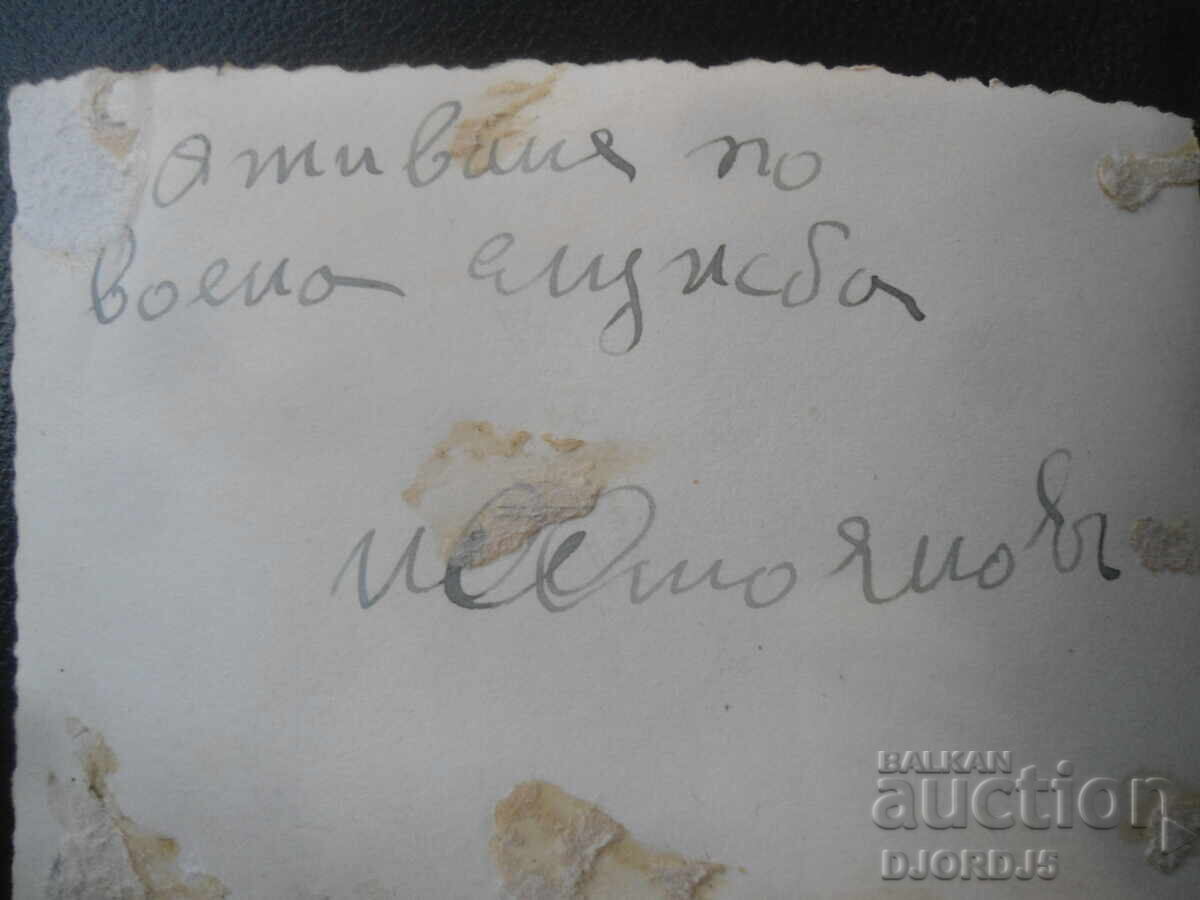 Отиване по
воена служба
Стояновъ
BALKAN
auction
DJORDJ5